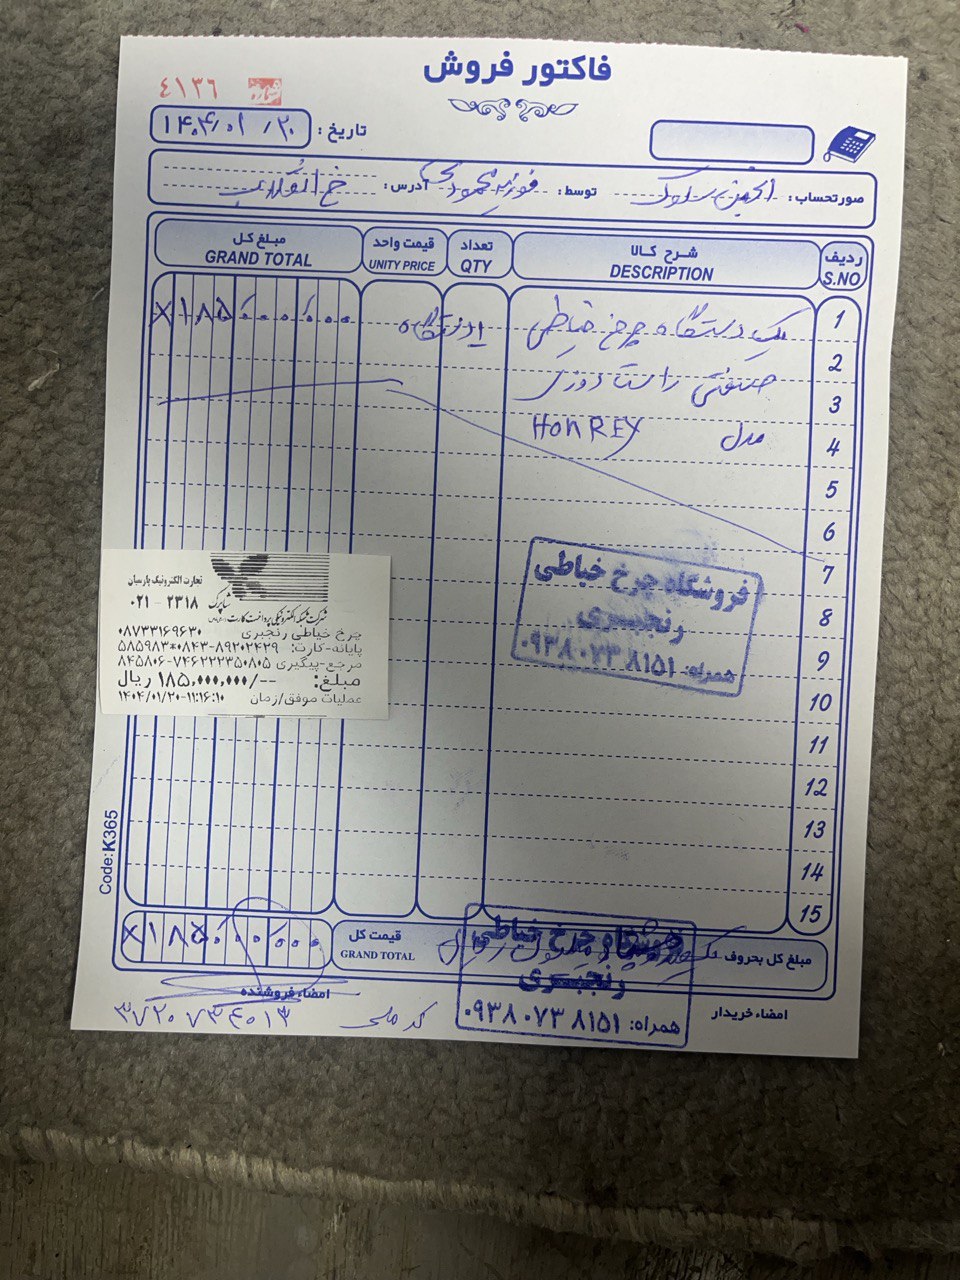 فاکتور فروش
شماره ٤١٣٦
تاریخ : ۱۴۰۴/۰۱/۲۰
صورتحساب : انجمن سلوک توسط : فوزیه محمودی آدرس :
ردیف شرح کالا تعداد قیمت واحد مبلغ کل
S.NO DESCRIPTION QTY UNITY PRICE GRAND TOTAL
1 یک دستگاه چرخ خیاطی ۱ دستگاه ×۱۸۵۰۰۰۰۰۰
2 صنعتی راسته دوزی
3
4 مدل HONREY
5
6
7
8
9
10
11
12
13
14
15
فروشگاه چرخ خیاطی
رنجبری
همراه: ۰۹۳۸۰۷۳۸۱۵۱
تجارت الکترونیک پارسیان
شاپرک ۲۳۱۸ - ۰۲۱
شرکت شبکه الکترونیکی پرداخت کارت
چرخ خیاطی رنجبری ۰۸۷۳۳۱۶۹۶۳۰
پایانه-کارت: ۵۸۵۹۸۳*۰۸۴۳-۸۹۲۰۲۴۲۹
مرجع-پیگیری ۸۴۵۸۰۶-۷۴۶۲۲۲۳۵۰۸۰۵
مبلغ: ۱۸۵,۰۰۰,۰۰۰/-- ریال
عملیات موفق/زمان ۱۴۰۴/۰۱/۲۰-۱۱:۱۶:۱۰
Code: K365
مبلغ کل بحروف قیمت کل ×۱۸۵۰۰۰۰۰۰
GRAND TOTAL
فروشگاه چرخ خیاطی
رنجبری
همراه: ۰۹۳۸۰۷۳۸۱۵۱
امضاء خریدار امضاء فروشنده
کد ملی ۳۷۲۰۷۳۴۰۱۳